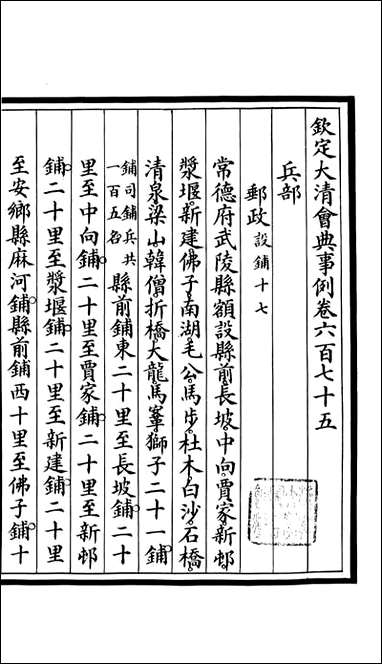 欽定大清會典事例卷六百七十五
兵部
郵政設鋪十七
常德府武陵縣額設縣前長坡中向賈家新邨
漿堰新建佛子南湖毛公馬步杜木白沙石橋
清泉梁山韓僧折橋大龍馬峯獅子二十一鋪
鋪司鋪兵共一百五名縣前鋪東二十里至長坡鋪二十
里至中向鋪二十里至賈家鋪二十里至新邨
鋪二十里至漿堰鋪二十里至新建鋪二十里
至安鄉縣麻河鋪縣前鋪西十里至佛子鋪十